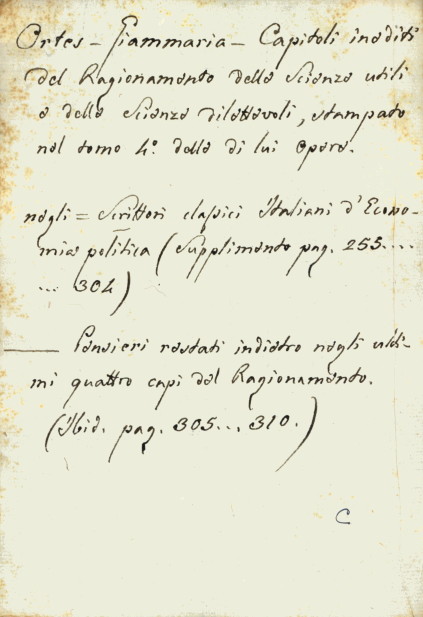 Ortes - Giammaria - Capitoli inediti
del Ragionamento delle Scienze utili
e delle Scienze dilettevoli, stampato
nel tomo 4º. delle di lui Opere.
negli = Scrittori classici Italiani d'Econo-
mia politica (Supplimento pag. 255....
... 304)
—— Pensieri restati indietro negli ulti-
mi quattro capi del Ragionamento.
(Ibid. pag. 305... 310.)
C